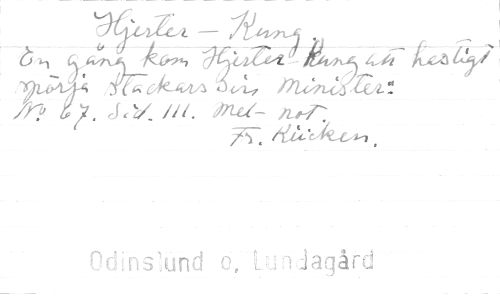 Hjerter – Kung.
En gång kom Hjerter Kung att hastigt
spörja stackars Sirs Minister:
No 67. Sid. 111. Mel- not.
Fr. Kücken.
Odinslund o, Lundagård